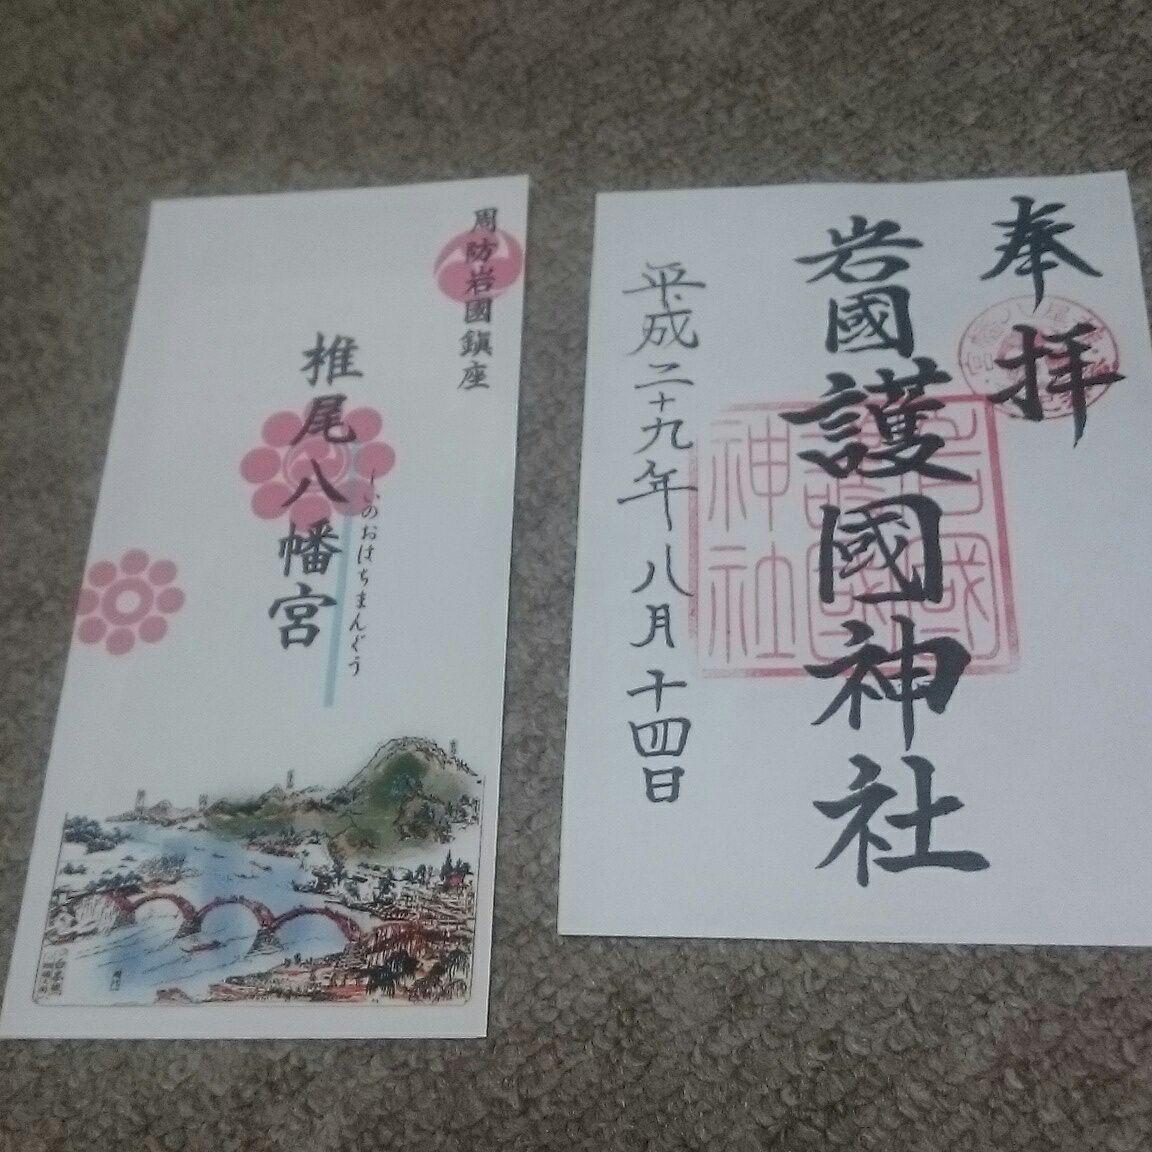 奉拝
岩國護國神社
平成二十九年八月十四日
周防岩國鎮座
椎尾八幡宮
しいのおはちまんぐう